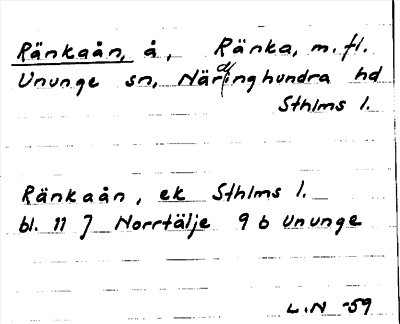 Ränkaån, å, Ränka, m.fl.
Ununge sn, Närdinghundra hd
Sthlms l.
Ränkaån, ek Sthlms l.
bl. 11 J Norrtälje 9 b Ununge
L.N -59